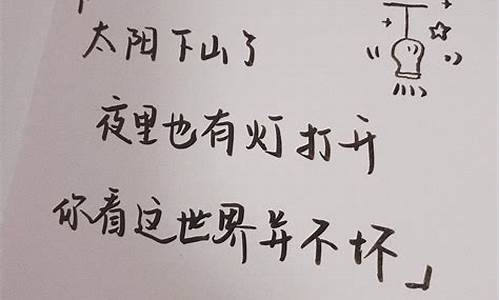 太阳下山了
夜里也有灯打开
你看这世界并不坏」